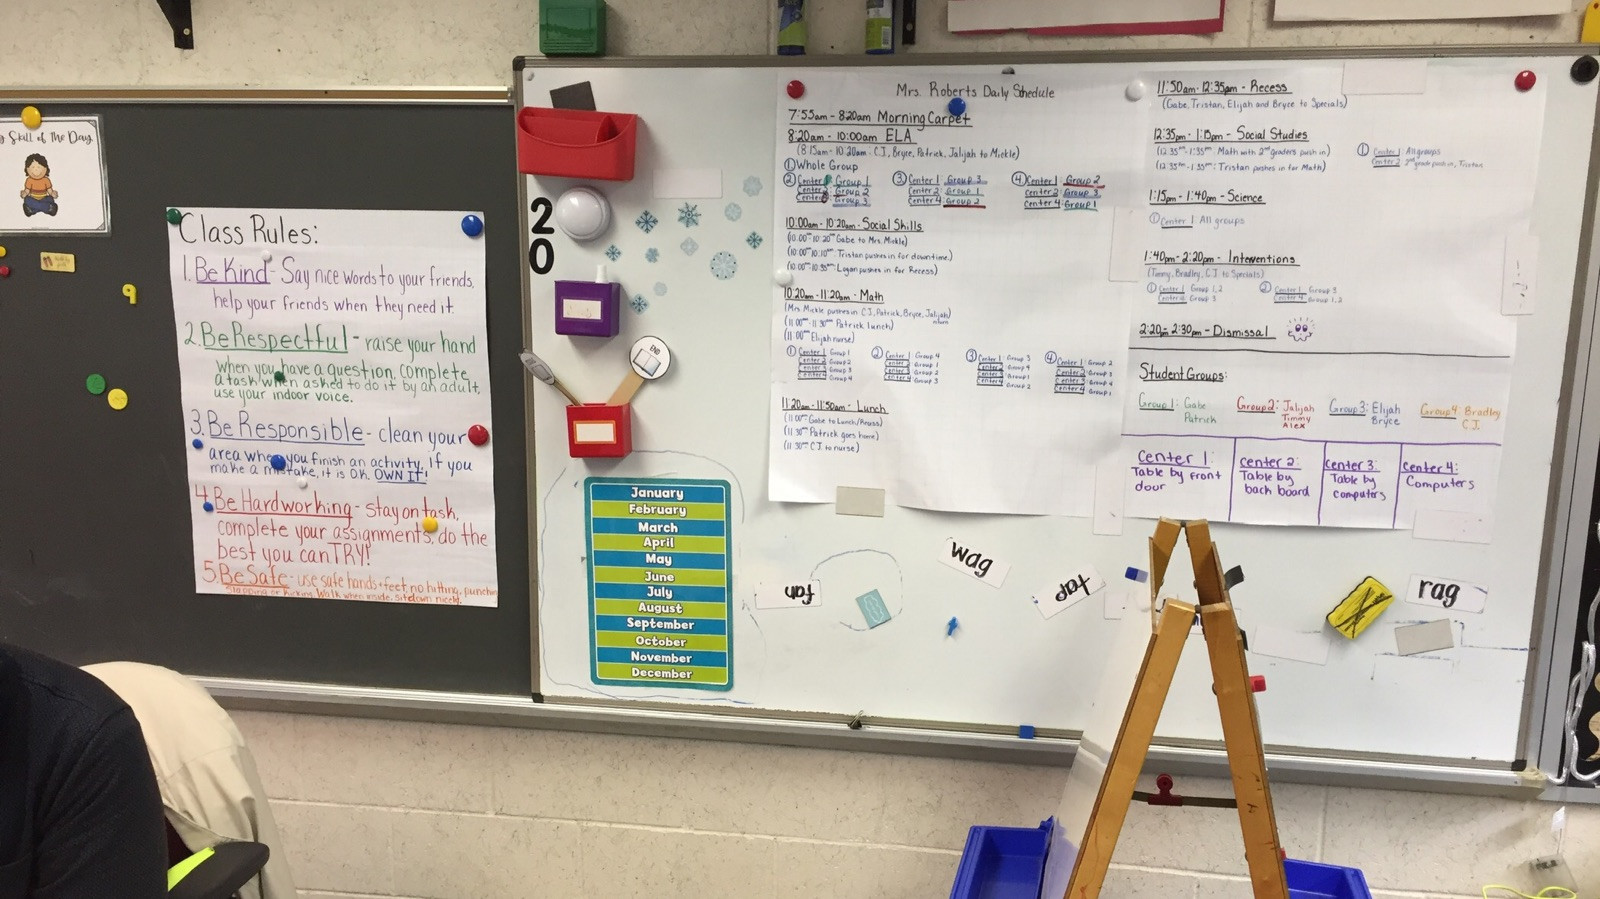 Skill of the Day
Class Rules:
1. Be Kind - Say nice words to your friends,
help your friends when they need it.
2. Be Respectful - raise your hand
when you have a question, complete
a task when asked to do it by an adult,
use your indoor voice.
3. Be Responsible - clean your
area when you finish an activity, if you
make a mistake, it is OK. OWN IT!
4. Be Hardworking - stay on task,
complete your assignments, do the
best you can TRY!
5. Be Safe - use safe hands + feet, no hitting, punching
or kicking. Walk when inside, sit down nicely.
9
2
0
END
January
February
March
April
May
June
July
August
September
October
November
December
Mrs. Roberts Daily Schedule
7:55am - 8:20am Morning Carpet
8:20am - 10:00am ELA
(8:15am - 10:20am: C.J., Bryce, Patrick, Jalijah to Mickle)
① Whole Group
② Center 1: Group 1
Center 2: Group 2
Center Group 3
③ Center 1: Group 3
Center 2: Group 1
Center 4: Group 2
④ Center 1: Group 2
Center 2: Group 3
Center 4: Group 1
10:00am - 10:20am - Social Skills
(10:00am - 10:20am Gabe to Mrs. Mickle)
(10:00am - 10:10am: Tristan pushes in for downtime)
(10:00am - 10:35am: Logan pushes in for Recess)
10:20am - 11:20am - Math
(Mrs. Mickle pushes in C.J., Patrick, Bryce, Jalijah)
(11:00am - 11:30am Patrick lunch)
(11:00am Elijah nurse)
① Center 1: Group 1
Center 2: Group 2
Center 3: Group 3
Center 4: Group 4
② Center 1: Group 4
Center 2: Group 1
Center 3: Group 2
Center 4: Group 3
③ Center 1: Group 3
Center 2: Group 4
Center 3: Group 1
Center 4: Group 2
④ Center 1: Group 2
Center 2: Group 3
Center 3: Group 4
Center 4: Group 1
11:20am - 11:50am - Lunch
(11:00am Gabe to Lunch/Recess)
(11:30am Patrick goes home)
(11:30am C.J. to nurse)
11:50am - 12:35pm - Recess
(Gabe, Tristan, Elijah and Bryce to Specials)
12:35pm - 1:15pm - Social Studies
(12:35pm - 1:35pm: Math with 2nd graders push in)
(12:35pm - 1:35pm: Tristan pushes in for Math)
① Center 1: All groups
Center 2: 2nd grade push in, Tristan
1:15pm - 1:40pm - Science
① Center 1: All groups
1:40pm - 2:20pm - Interventions
(Timmy, Bradley, C.J. to Specials)
① Center 1: Group 1, 2
Center 4: Group 3
② Center 1: Group 3
Center 4: Group 1, 2
2:20pm - 2:30pm - Dismissal
Student Groups:
Group 1: Gabe
Patrick
Group 2: Jalijah
Timmy
Alex
Group 3: Elijah
Bryce
Group 4: Bradley
C.J.
Center 1:
Table by front
door
Center 2:
Table by
back board
Center 3:
Table by
computers
Center 4:
Computers
fan
wag
tap
rag